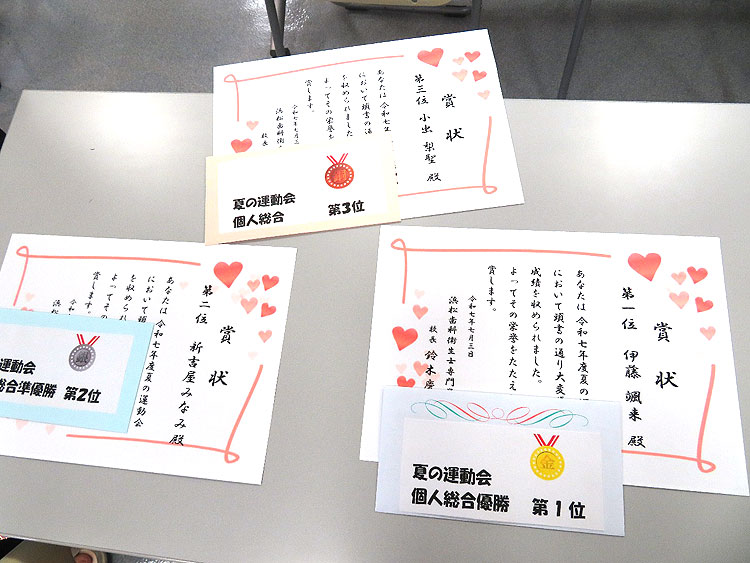 賞状
第三位 小出 梨聖 殿
あなたは 令和七年
において頭書の通
を収められました
よってその栄誉を
賞します。
令和七年七月三
浜松歯科衛
校長
夏の運動会
個人総合 第3位
賞状
第二位 新吉屋みなみ 殿
あなたは 令和七年度夏の運動会
において頭書の
を収められ
よってその
賞します。
令和七
浜松
運動会
総合準優勝 第2位
賞状
第一位 伊藤 颯来 殿
あなたは 令和七年度夏の運
において頭書の通り大変
成績を収められました。
よってその栄誉をたたえ
賞します。
令和七年七月三日
浜松歯科衛生士専門
校長 鈴木
金
夏の運動会
個人総合優勝 第1位